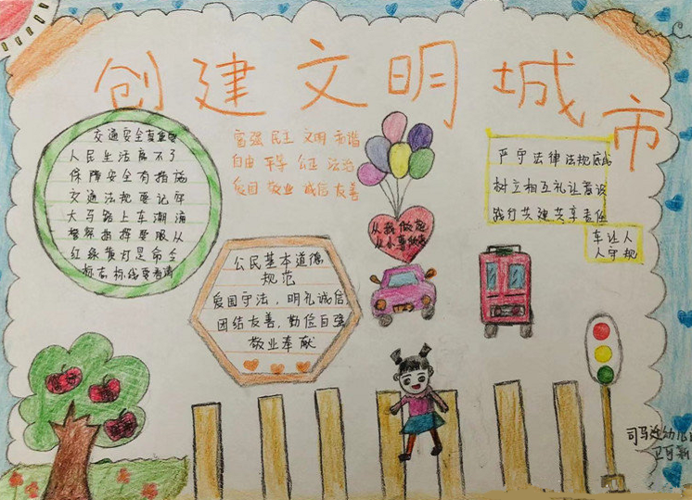 创建文明城市
交通安全真重要
人民生活离不了
保障安全有措施
交通法规要记牢
大马路上车潮涌
警察指挥要服从
红绿黄灯是命令
标志标线要看清
富强 民主 文明 和谐
自由 平等 公正 法治
爱国 敬业 诚信 友善
从我做起
从小事做起
严守法律法规底线
树立相互礼让意识
践行共建共享责任
车让人
人守规
公民基本道德
规范
爱国守法，明礼诚信
团结友善，勤俭自强
敬业奉献